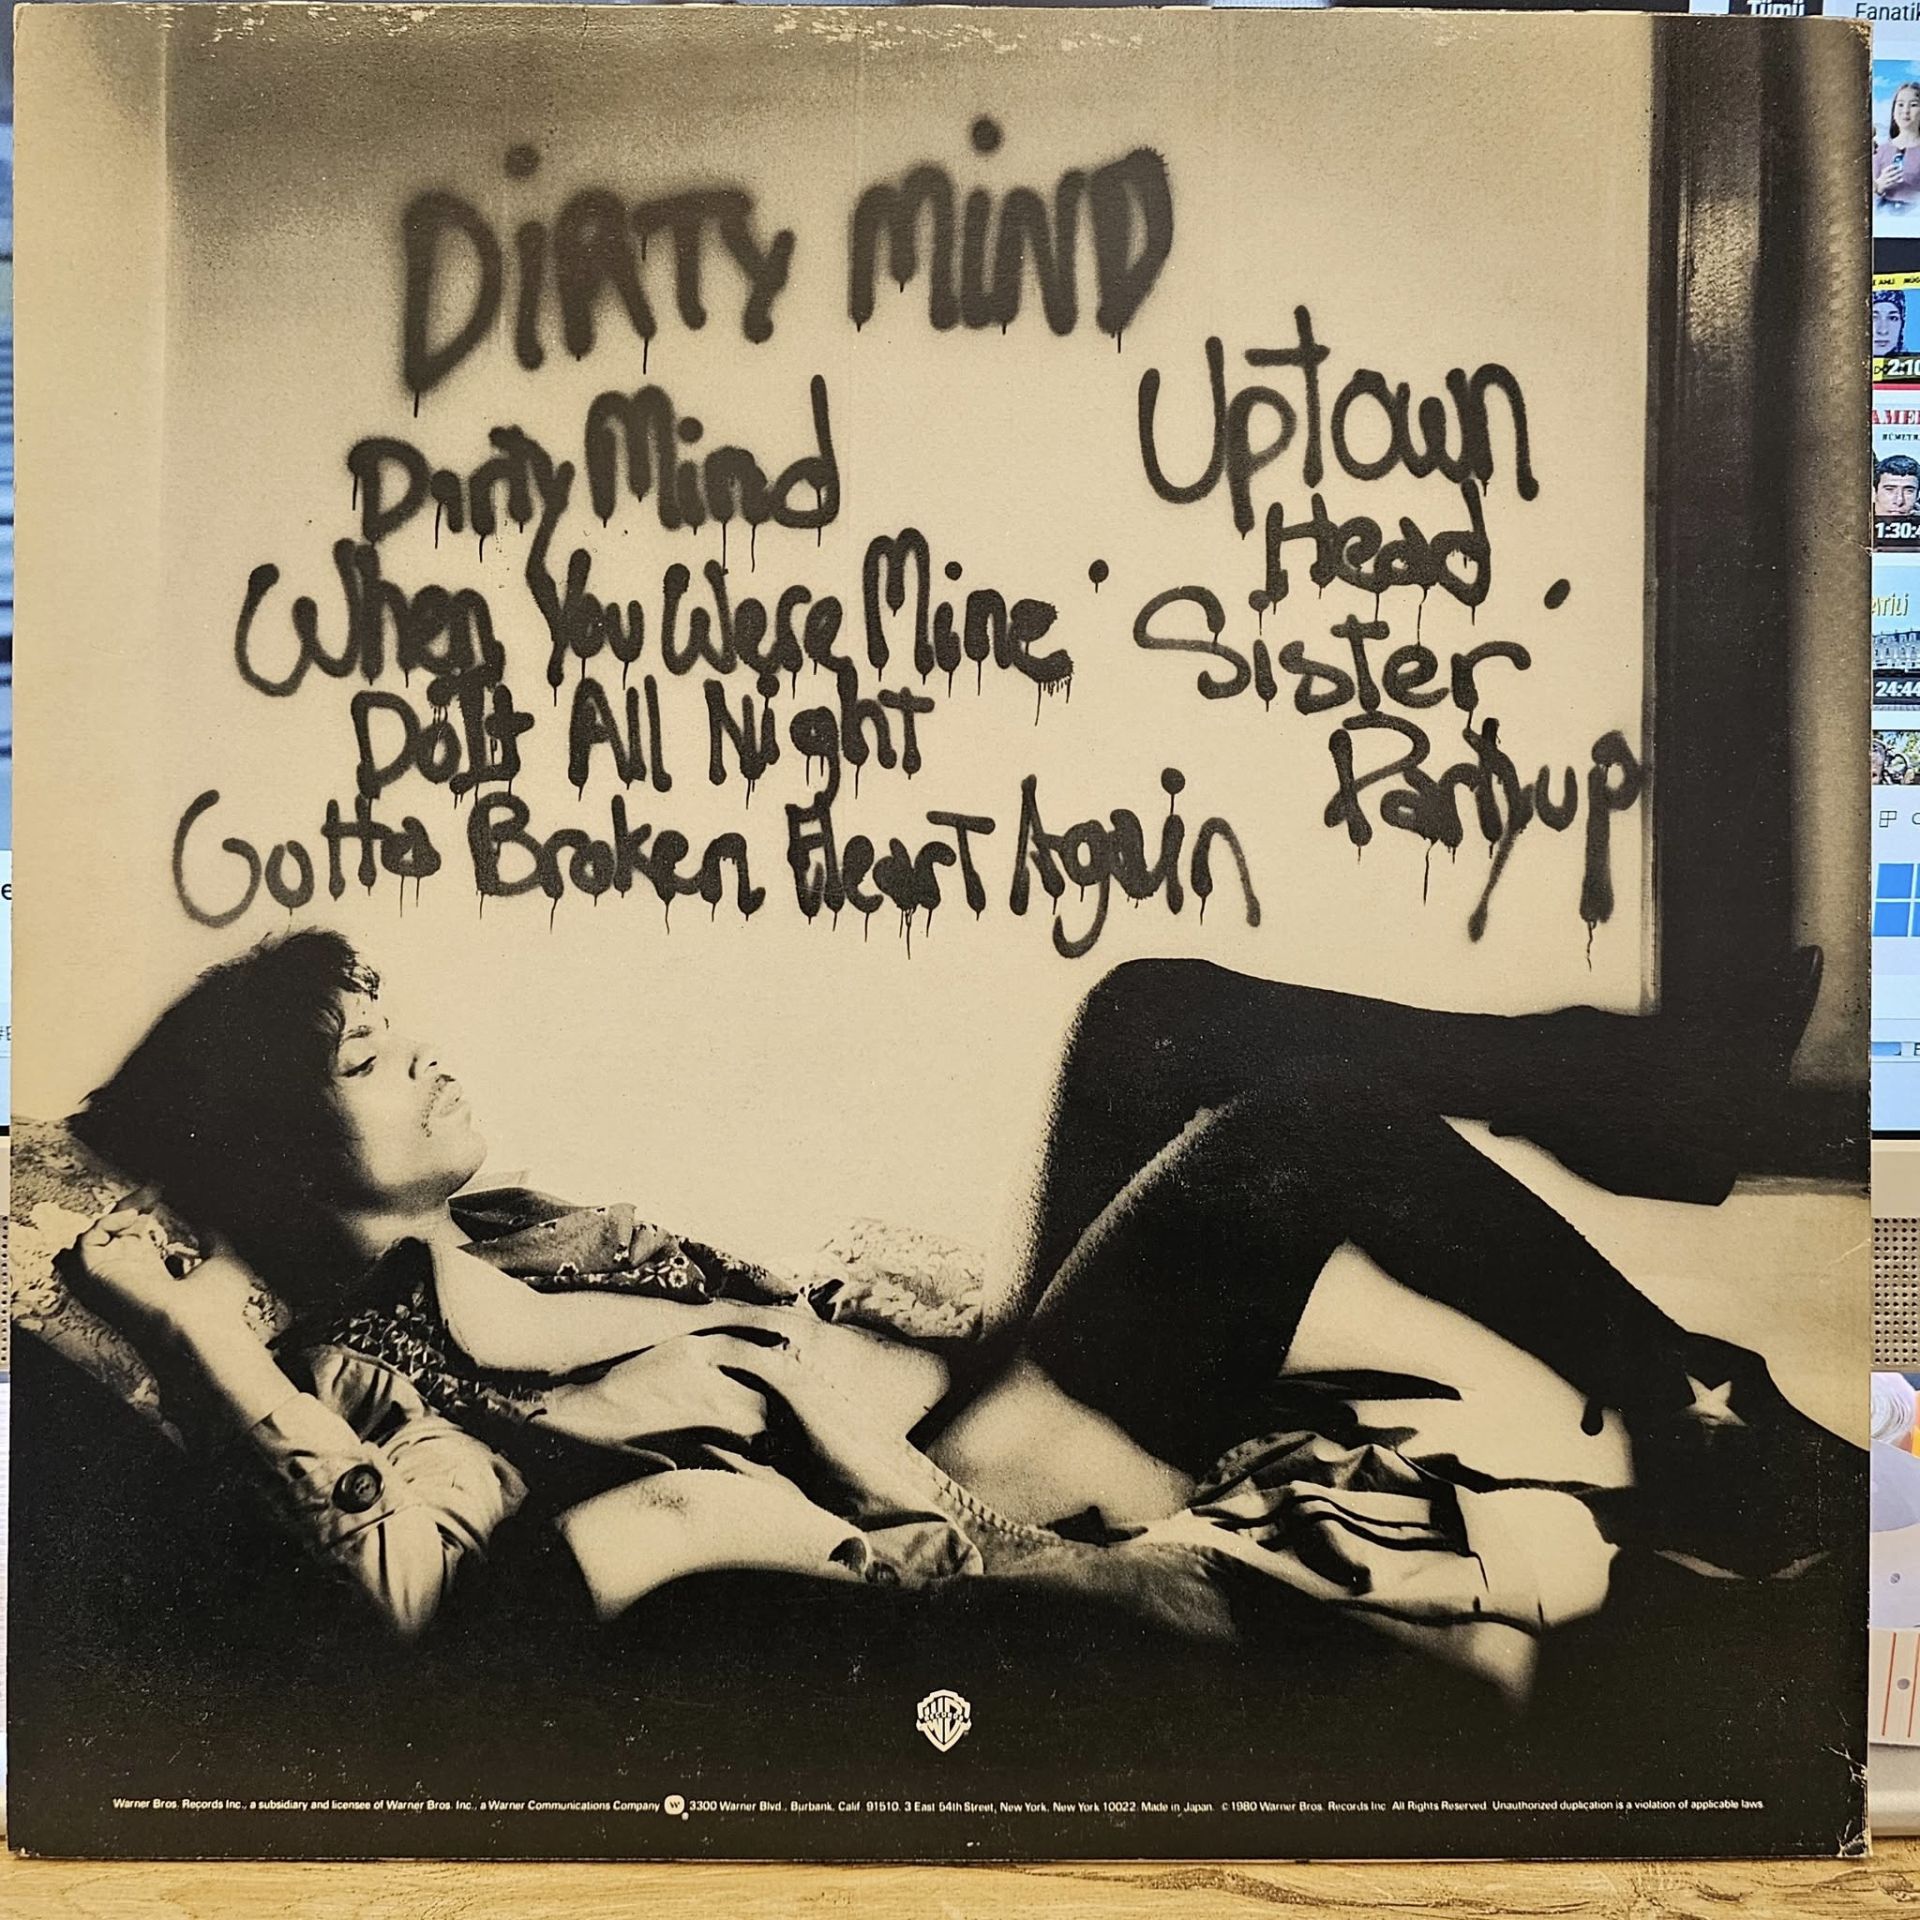 DiRTY MiND
Dirty Mind
When You Were Mine
Do It All Night
Gotta Broken Heart Again
Uptown
Head
Sister
Partyup
WB
RECORDS
Warner Bros. Records Inc., a subsidiary and licensee of Warner Bros. Inc., a Warner Communications Company W ® 3300 Warner Blvd., Burbank, Calif. 91510. 3 East 54th Street, New York, New York 10022. Made in Japan. © 1980 Warner Bros. Records Inc. All Rights Reserved. Unauthorized duplication is a violation of applicable laws.
Tümü
Fanatik
2:10
1:30:
24:44